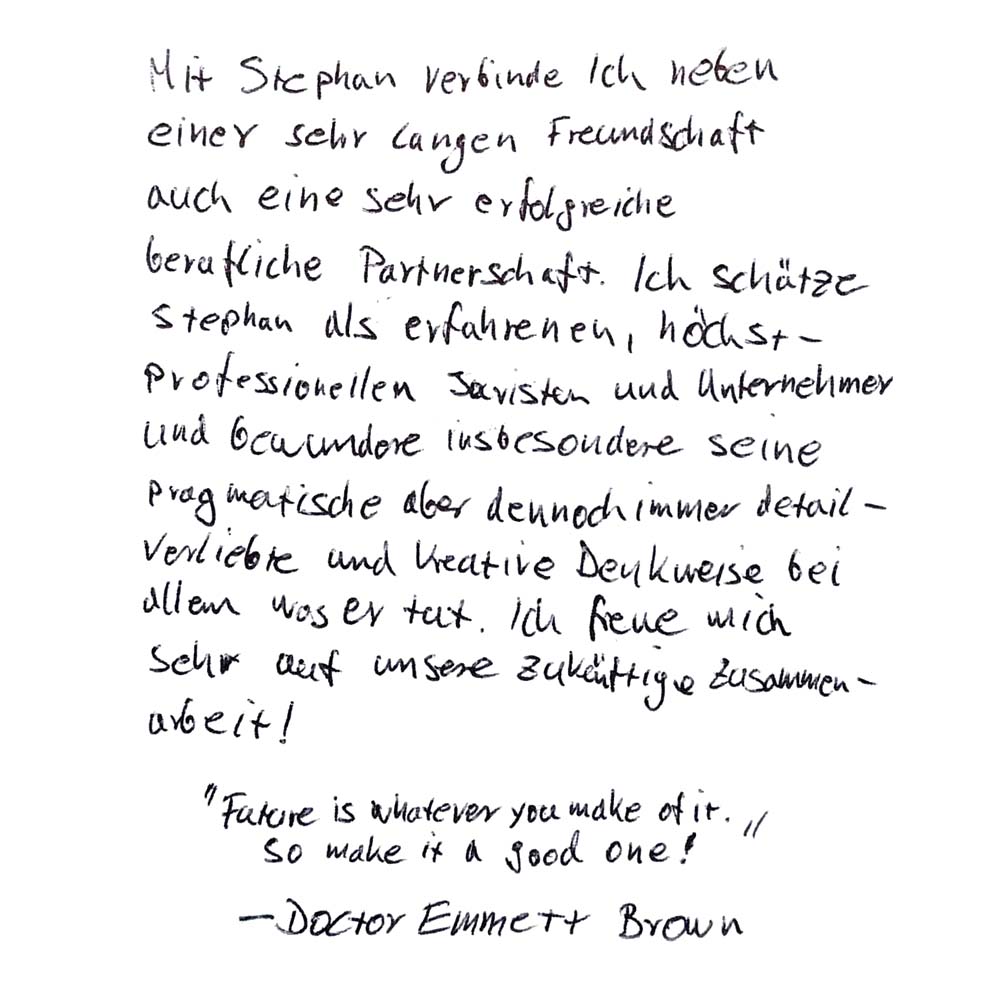 Mit Stephan verbinde Ich neben
einer sehr langen Freundschaft
auch eine sehr erfolgreiche
berufliche Partnerschaft. Ich schätze
Stephan als erfahrenen, höchst-
professionellen Juristen und Unternehmer
und bewundere insbesondere seine
pragmatische aber dennoch immer detail-
verliebte und kreative Denkweise bei
allem was er tut. Ich freue mich
sehr auf unsere zukünftige Zusammen-
arbeit!
"Future is whatever you make of it.
So make it a good one!"
- Doctor Emmett Brown